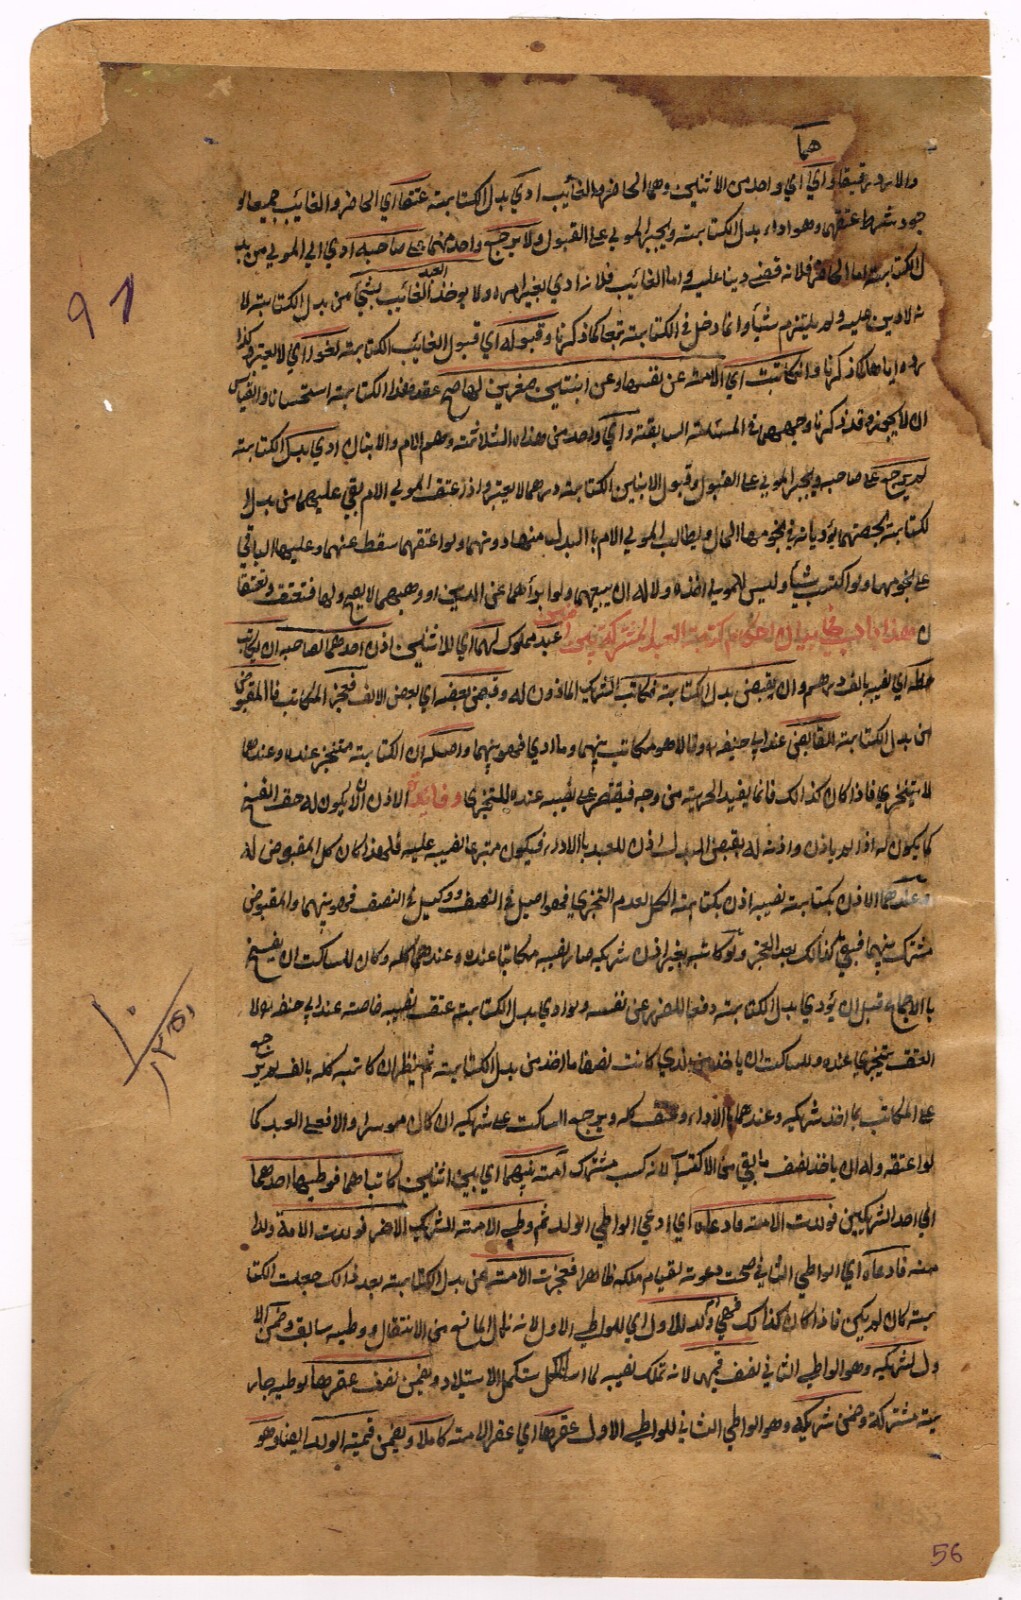 هما
والا رد رقيقا واي اي واحد من الاثنين وهما الحاضر والغائب ادي بدل الكتابته عتقا اي الحاضر والغائب جميعا لو
جود شرط عتقهما وهو اداء بدل الكتابته ويجبر المولي علي القبول ولا يرجع واحد منهما علي صاحبه ادي الي المولي من بد
ل الكتابته اما الحاضر فلانه قضي دينا عليه واما الغائب فلانه ادي بغير امره ولا يوخذ العبد الغائب بشئ من بدل الكتابته لا
نه لا دين عليه ولم يلتزم شيأ وانما دخل في الكتابته تبعا كما ذكرنا وقبوله اي قبول الغائب الكتابته لغو اي لا يعتبر وكذا
رده اياها كما ذكرنا وان كاتبت اي الامته عن نفسها وعن ابنتين صغرين لها صح عقد هذا الكتابته استحسانا والقياس
ان لا يجوز وقد ذكرنا وجههما في المسئلته السابقته واي واحد من هذه الثلاثته وهم الام والابنان ادي بدل الكتابته
لم يرجع علي صاحبه ويجبر المولي علي القبول وقبول الابنين الكتابته وردهما لا يعتبر واذ عتق المولي الام بقي عليهما من بدل ا
لكتابته بحصتهما يؤديانه في نجومها الحال ويطالب المولي الام باالبدل منها دونهما ولو اعتقهما سقط عنهما وعليها الباقي
علي نجومها ولو اكتسب شيأ وليس للمولي اخذه ولا له ان يبيعهما ولو ابرأهما عن الدين او وهبهما لا يصح ولها فتعتق وتعتقا
ن هذا باب في بيان احكام كتابته العبد المشتركته بين اثنين عبد مملوك لهما اي للاثنين اذن احدهما لصاحبه ان يكاتب
حظه اي نصيبه بالف درهم وان يقبض بدل الكتابته فكاتب الشريك الماذون له وقبض بعضه اي بعض الالف فعجز المكاتب فاالمقبوض
من بدل الكتابته للقابض عند ابي حنيفه وقالا هو مكاتب بينهما وما ادي فهو بينهما واصله ان الكتابته متنجز عنده وعندها
لا يتنجزي فاذا كان كذالك فانما يفيد الحريته من وجه فيقتصر علي نصيبه عنده للتنجزي وفائدة الاذن ان لا يكون له حق الفسخ
كما يكون له اذا لم ياذن واذنه له بقبض البدل اذن للعبد باالادا، فيكون متبرعا نصيبه عليه فلهذا كان كل المقبوض له
وعندهما الاذن بكتابته نصيبه اذن بكتابته الكل لعدم التنجزي فهو اصيل في النصف ووكيل في النصف فهو بينهما والمقبوض
مشترك بينهما فيبقي كذالك بعد العجز ولو كاتبه بغير اذن شريكه صار نصيبه مكاتبا عنده وعندهما كله وكان للساكت ان يفسخ
باالاجماع قبل ان يؤدي بدل الكتابته دفعا للضرر عن نفسه ولو ادي بدل الكتابته عتق نصيبه خاصته عند ابي حنفه لا
العتق يتنجزي عنده وللساكت ان ياخذ من الذي كاتب نصفا ما اخذ من بدل الكتابته ثم ينظر ان كاتبه كله بالف لم يرجع
علي المكاتب بما اخذ شريكه وعندهما باالاداء وعتق كله ويرجع الساكت علي شريكه ان كان موسرا والافعلي العبد كما
لو اعتقه وله ان ياخذ نصف ما بقي من الاكتساب لانه كسب مشترك امته بينهما اي بين اثنين كاتباهما فوطيها احدهما
اي احد الشريكين فولدت الامته فادعاه اي ادعي الواطي الولد ثم وطي الامته الشريك الاخر فولدت الامة ولدا
منه فادعاه اي الواطي الثاني صحت دعوته لقيام ملكه ظاهرا فعجزت الامته عن بدل الكتابته بعد ذالك جعلت الكتا
بته كان لم يكن فاذا كان كذالك فهي ام ولد للاول اي للواطي الاول لانه زال المانع من الانتقال ووطيه سابق وضمن الا
ول لشريكه وهو الواطي الثاني نصف قيمتها لانه تملك نصيبه لما استكمل الاستيلاد ويضمن نصف عقرها لوطيه جار
يته مشتركة وضمن شريكه وهو الواطي الثاني للواطي الاول عقرها اي عقر الامته كاملا ويضمن قيمته الولد ايضا وهو
56